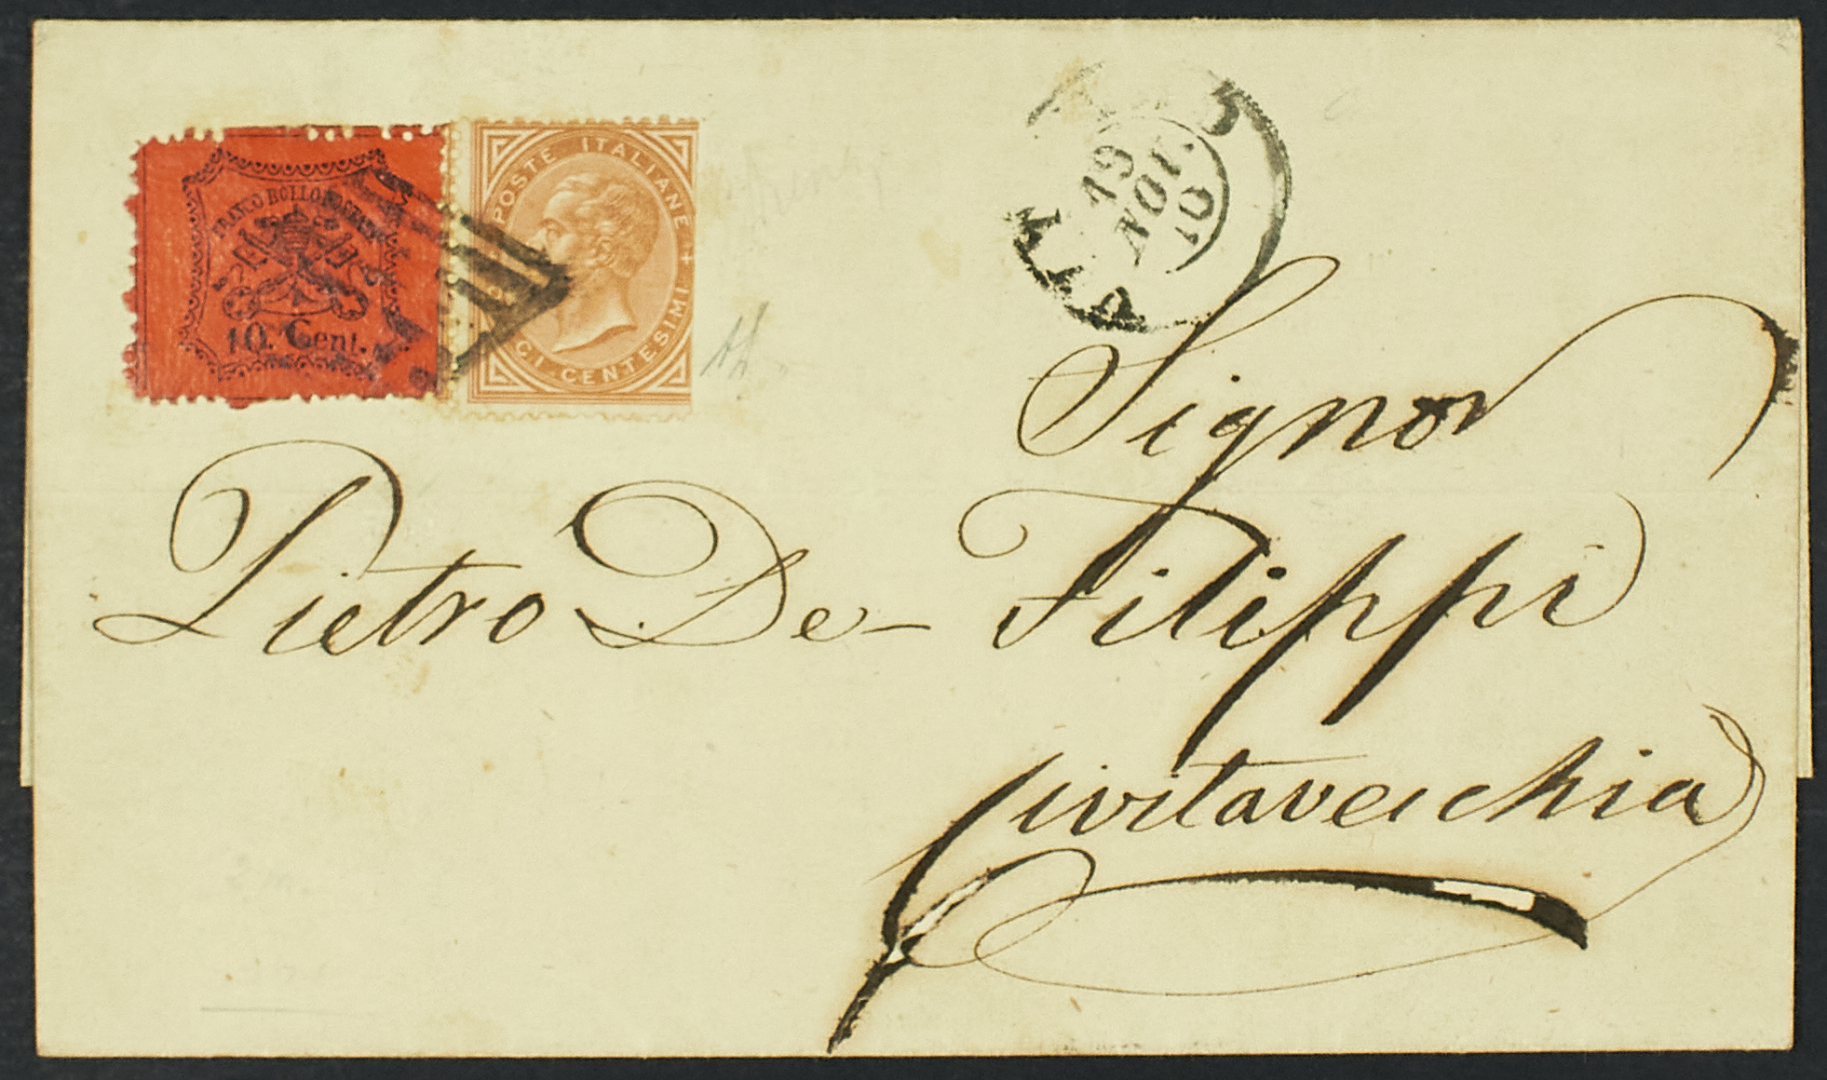 FRANCO BOLLO POSTALE
10. Cent.
POSTE ITALIANE
CI CENTESIMI
19
NOV.
10
Signor
Pietro De- Filippi
Civitavecchia